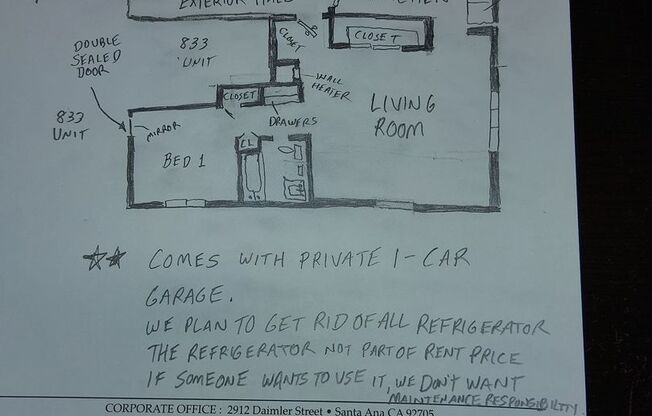 EXTERIOR HALL
KITCHEN
CLOSET
CLOSET
DOUBLE
SEALED
DOOR
833
UNIT
WALL
HEATER
CLOSET
LIVING
ROOM
833
UNIT
MIRROR
DRAWERS
BED 1
CL
☆☆ COMES WITH PRIVATE 1-CAR
GARAGE.
WE PLAN TO GET RID OF ALL REFRIGERATOR
THE REFRIGERATOR NOT PART OF RENT PRICE
IF SOMEONE WANTS TO USE IT, WE DON'T WANT
MAINTENANCE RESPONSIBILITY.
CORPORATE OFFICE : 2912 Daimler Street • Santa Ana CA 92705